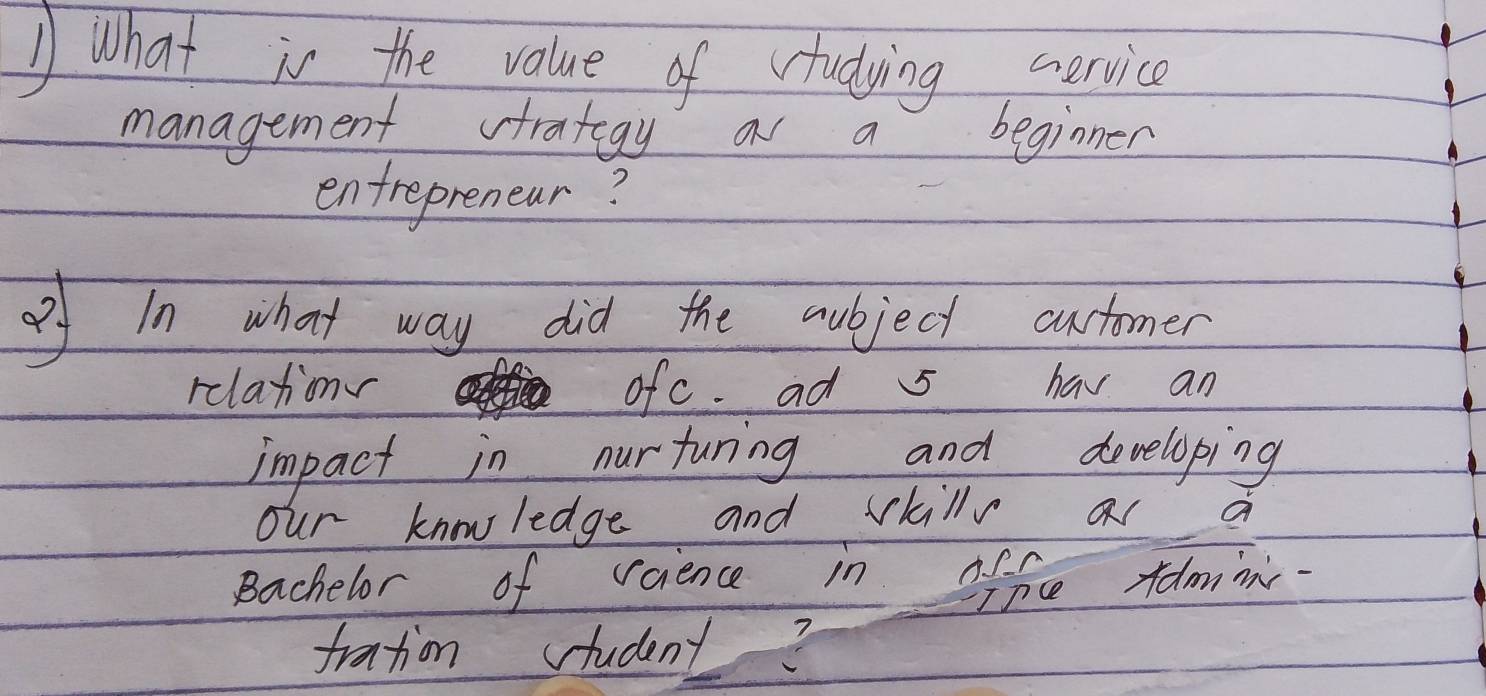 1) What is the value of studying service
management strategy as a beginner
entrepreneur?
2) In what way did the subject customer
relations ofc. ad 5 has an
impact in nurturing and developing
our knowledge and skills as a
Bachelor of science in office Adminis-
tration student?